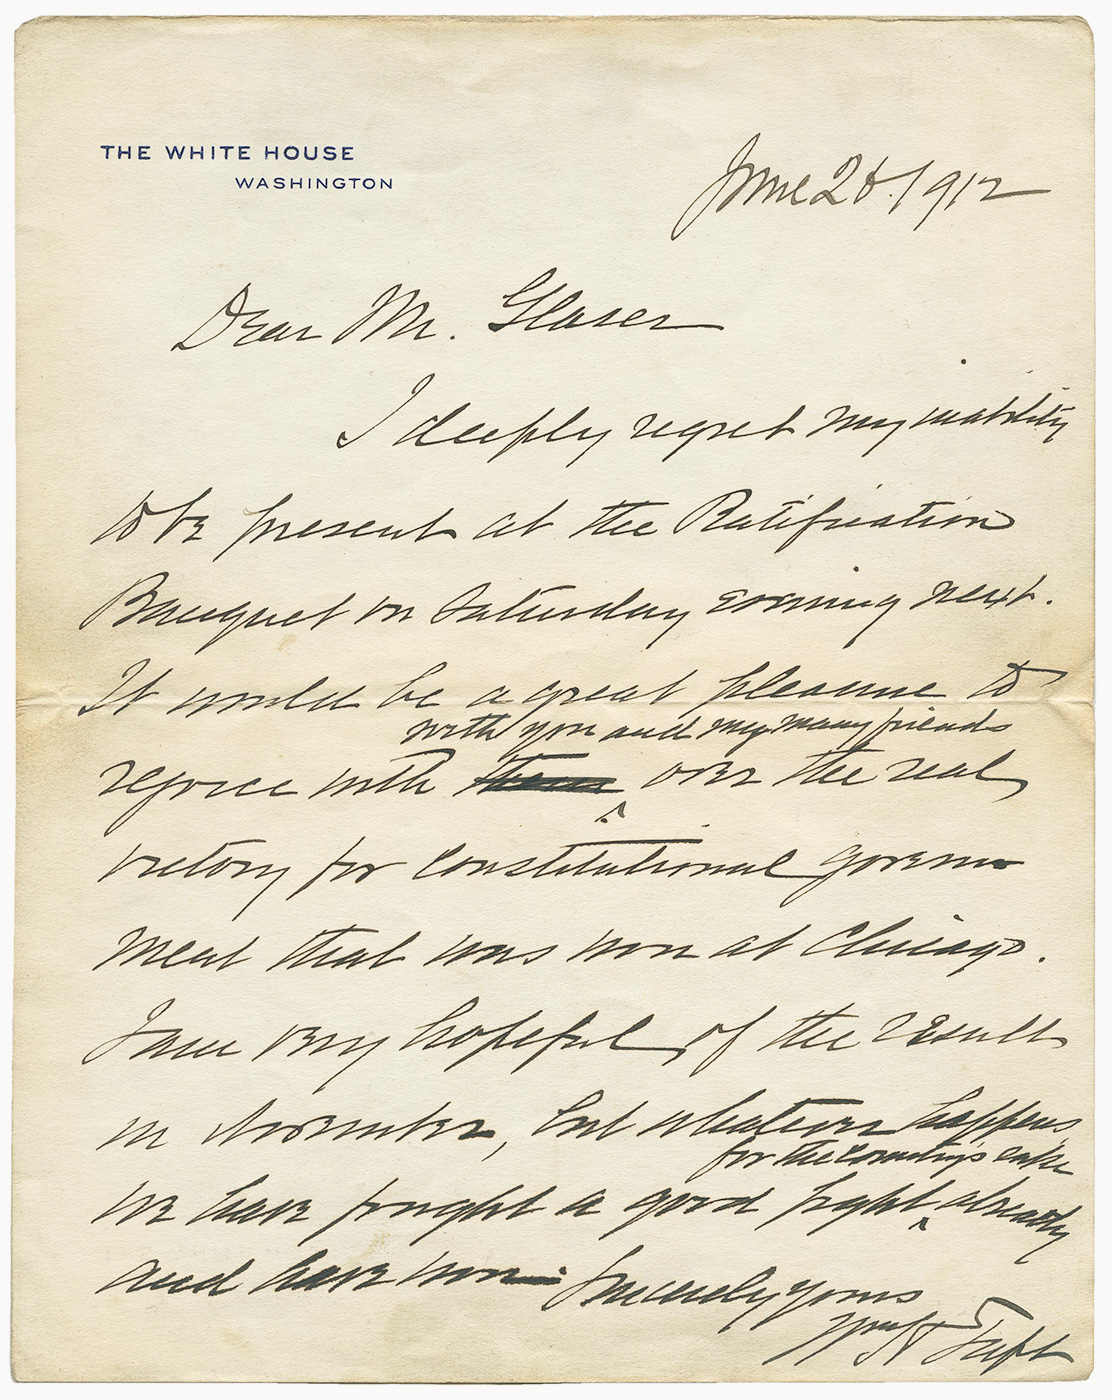 THE WHITE HOUSE
WASHINGTON
June 28. 1912
Dear Mr. Glaser
I deeply regret my inability
to be present at the Ratification
Banquet on Saturday evening next.
It would be a great pleasure to
with you and my many friends
rejoice with them over the real
victory for constitutional govern
ment that was won at Chicago.
I am very hopeful of the result
in November, but whatever happens
for the country's sake
we have fought a good fight ^ already
and have won Sincerely yours
Wm H Taft